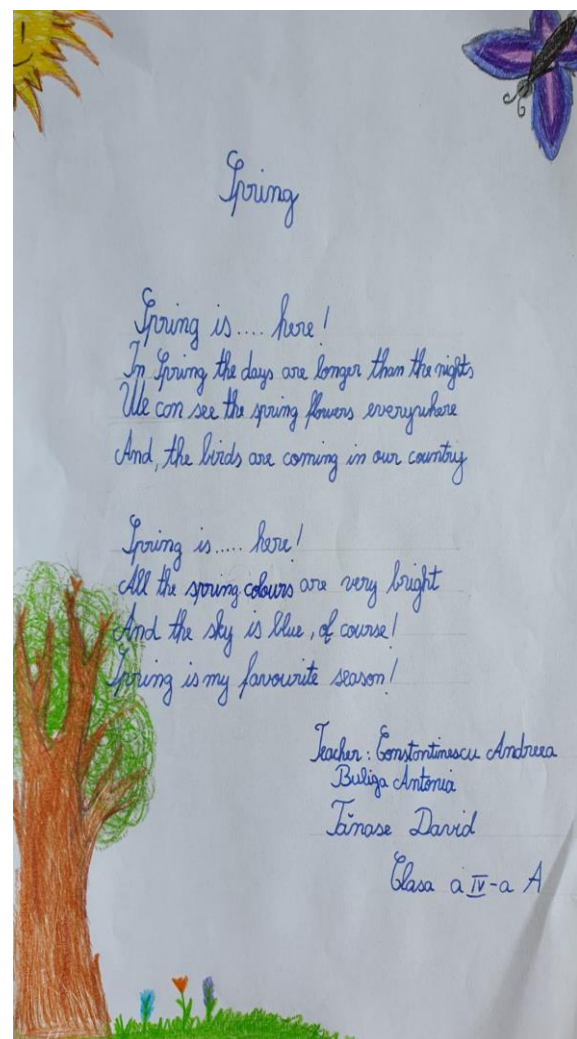 Spring
Spring is.... here!
In Spring the days are longer than the nights
We can see the spring flowers everywhere
And, the birds are coming in our country
Spring is..... here!
All the spring colours are very bright
And the sky is blue, of course!
Spring is my favourite season!
Teacher: Constantinescu Andreea
Buliga Antonia
Tănase David
Clasa a IV-a A